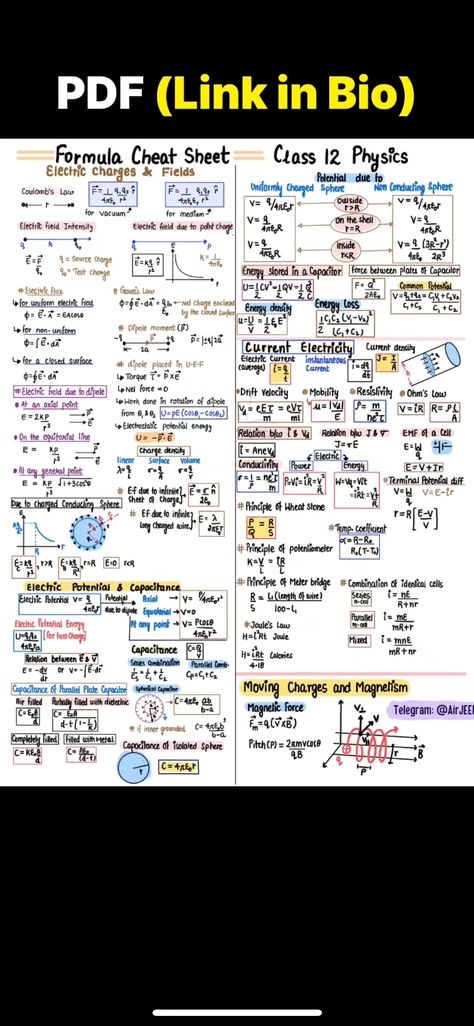 PDF (Link in Bio)
Formula Cheat Sheet
Electric Charges & Fields
Coulomb's Law
F = 1/4πε₀ q₁q₂/r² r̂
for vacuum
for medium
Electric field Intensity
q₀ = Test charge
q = Source charge
Electric field due to point charge
E = kq/r² r̂
k = 1/4πε₀
# Electric flux
↳ for uniform electric field
Φ = E⃗·A⃗ = EAcosθ
↳ for non-uniform
Φ = ∫E⃗·dA⃗
↳ for a closed surface
Φ = ∮E⃗·dA⃗
# Gauss's Law
net charge enclosed
by the closed surface
# Dipole moment (P⃗)
# dipole placed in U·E·F
↳ Torque τ⃗ = P⃗×E⃗
↳ Net force = 0
↳ Work done in rotation of dipole
from θ₁ & θ₂ U = PE(Cosθ₁-Cosθ₂)
↳ Electrostatic potential energy
U = -P⃗·E⃗
# Electric field due to dipole
At an axial point
E = 2kp/r³
On the equitorial line
E = kp/r³
At any general point
E = kp/r³ √1+3cos²θ
Charge density
linear surface volume
# Ef due to infinite
Sheet of Charge
# Ef due to infinite
long charged wire
E = λ/2πε₀r
Due to charged Conducting Sphere
Electric Potential & Capacitance
Electric Potential V = q/4πε₀r
Potential due to dipole
Axial → V = P/4πε₀r²
Equatorial → V=0
At any point → V = Pcosθ/4πε₀r²
Electric Potential Energy
(for two charge)
Relation between E⃗ & V
E = -dV/dr or V = -∫E⃗·dr⃗
Capacitance C = Q/V
Series Combination
Parallel Comb.
Cp = C₁+C₂
Capacitance of Parallel Plate Capacitor
Air filled
Partially filled with dielectric
Completely filled
filled with metal
C = kε₀A/d
Spherical Capacitor
C = 4πε₀ ab/b-a
# if inner grounded
C = 4πε₀ b²/b-a
Capacitance of Isolated Sphere
C = 4πε₀r
Class 12 Physics
Potential due to
Uniformly Charged Sphere
Non Conducting Sphere
V = q/4πε₀r
Outside
r>R
V = q/4πε₀r
V = q/4πε₀R
On the shell
r=R
V = q/4πε₀R
V = q/4πε₀R
Inside
r<R
Energy stored in a Capacitor
U = 1/2 CV² = 1/2 QV = 1/2 Q²/C
Force between plates of Capacitor
F = Q²/2Aε₀
Common Potential
Energy density
Energy Loss
1/2 C₁C₂(V₁-V₂)²/(C₁+C₂)
Current Electricity
Electric Current
(average) i = q/t
instantaneous
Current
i = dq/dt
Current density
J = I/A
Drift Velocity
Mobility
Resistivity
Ohm's Law
V = iR
R = ρL/A
Relation b/w i & Vd
i = AneVd
Relation b/w J & V
EMF of a Cell
E = V+Ir
Conductivity
Electric
Power
Energy
Terminal Potential diff
V = E-Ir
# Principle of Wheat stone
P/Q = R/S
# Temp. coefficient
α = R-R₀/R₀(T-T₀)
# Principle of potentiometer
# Principle of Meter bridge
R/S = L₁(length of wire)/100-L₁
# Combination of identical cells
Series
n-cell
i = nE/R+nr
Parallel
m-cell
i = mE/mR+r
Mixed
i = mnE/mR+nr
# Joule's Law
H = i²Rt Joule
H = i²Rt/4.18 Calories
Moving Charges and Magnetism
Telegram: @AirJEE
Magnetic Force
Fₘ = q(V⃗×B⃗)
Pitch(P) = 2πmvcosθ/qB